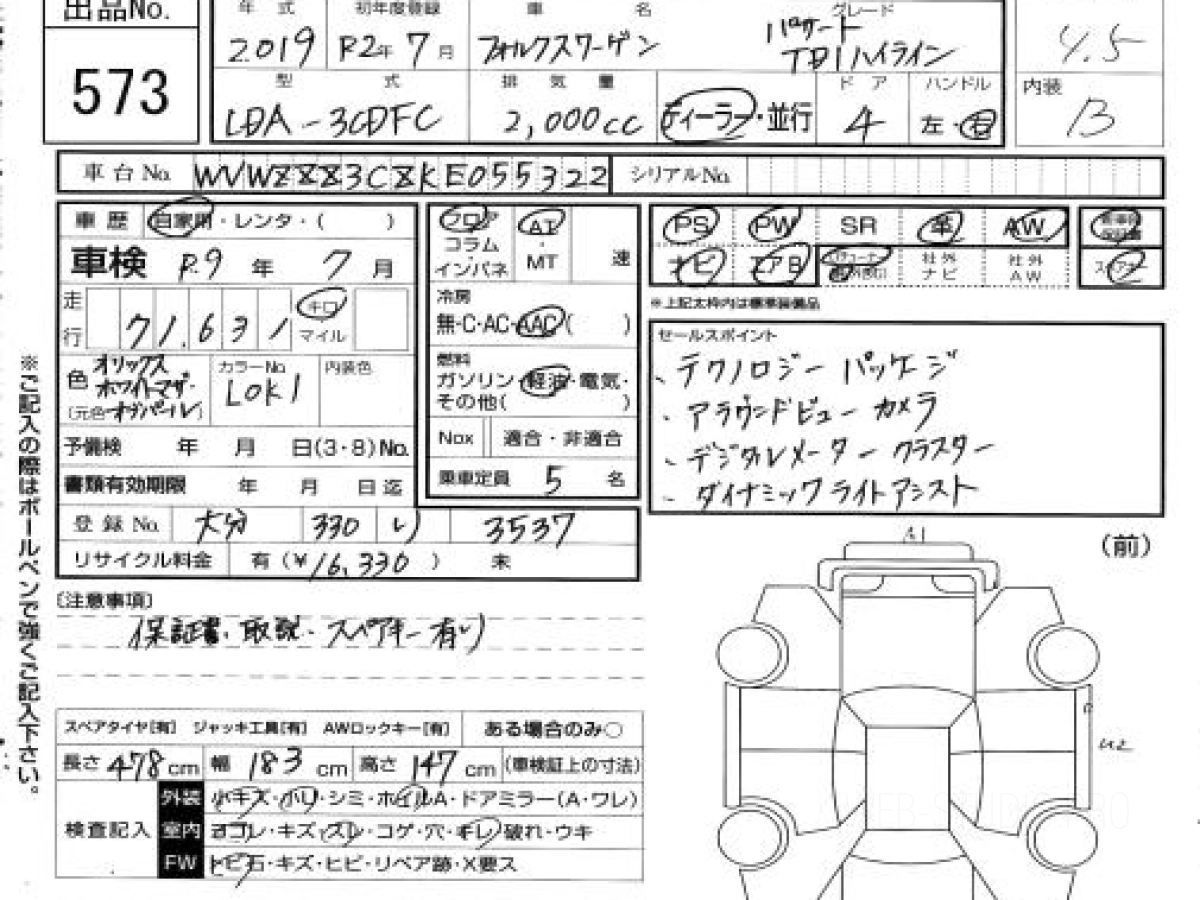 出品No.
573
年式 初年度登録 車名 グレード
2019 R2年 7月 フォルクスワーゲン パサート TDIハイライン
4.5
型式 排気量 ドア ハンドル
LDA-3CDFC 2,000cc ディーラー・並行 4 左・右
内装
B
車台No. WVWZZZ3CZKE055322 シリアルNo.
車歴 自家用・レンタ・( )
車検 R.9年 7月
走行 71.631 キロ マイル
色 オリックスホワイトマザーオブパール
(元色 )
カラーNo. LOK1 内装色
予備検 年 月 日(3・8)No.
書類有効期限 年 月 日迄
登録No. 大分 330 い 3537
リサイクル料金 有(¥16,330) 未
フロア
コラム
インパネ
AT・MT 速
冷房
無・C・AC・AAC( )
燃料
ガソリン・軽油・電気・
その他( )
Nox 適合・非適合
乗車定員 5 名
PS PW SR 革 AW
ナビ エアB 社外ナビ 社外AW
※上記太枠内は標準装備品
セールスポイント
・テクノロジー パッケージ
・アラウンドビュー カメラ
・デジタルメーター クラスター
・ダイナミックライトアシスト
※ご記入の際はボールペンで強くご記入下さい。
[注意事項]
保証書・取説・スペアキー有り
スペアタイヤ[有] ジャッキ工具[有] AWロックキー[有] ある場合のみ○
長さ 478cm 幅 183cm 高さ 147cm (車検証上の寸法)
検査記入
外装 小キズ・小凹・シミ・ホイルA・ドアミラー(A・ワレ)
室内 ヨゴレ・キズ・スレ・コゲ・穴・キレ・破れ・ウキ
FW トビ石・キズ・ヒビ・リペア跡・X要ス
(前)
A1
U2